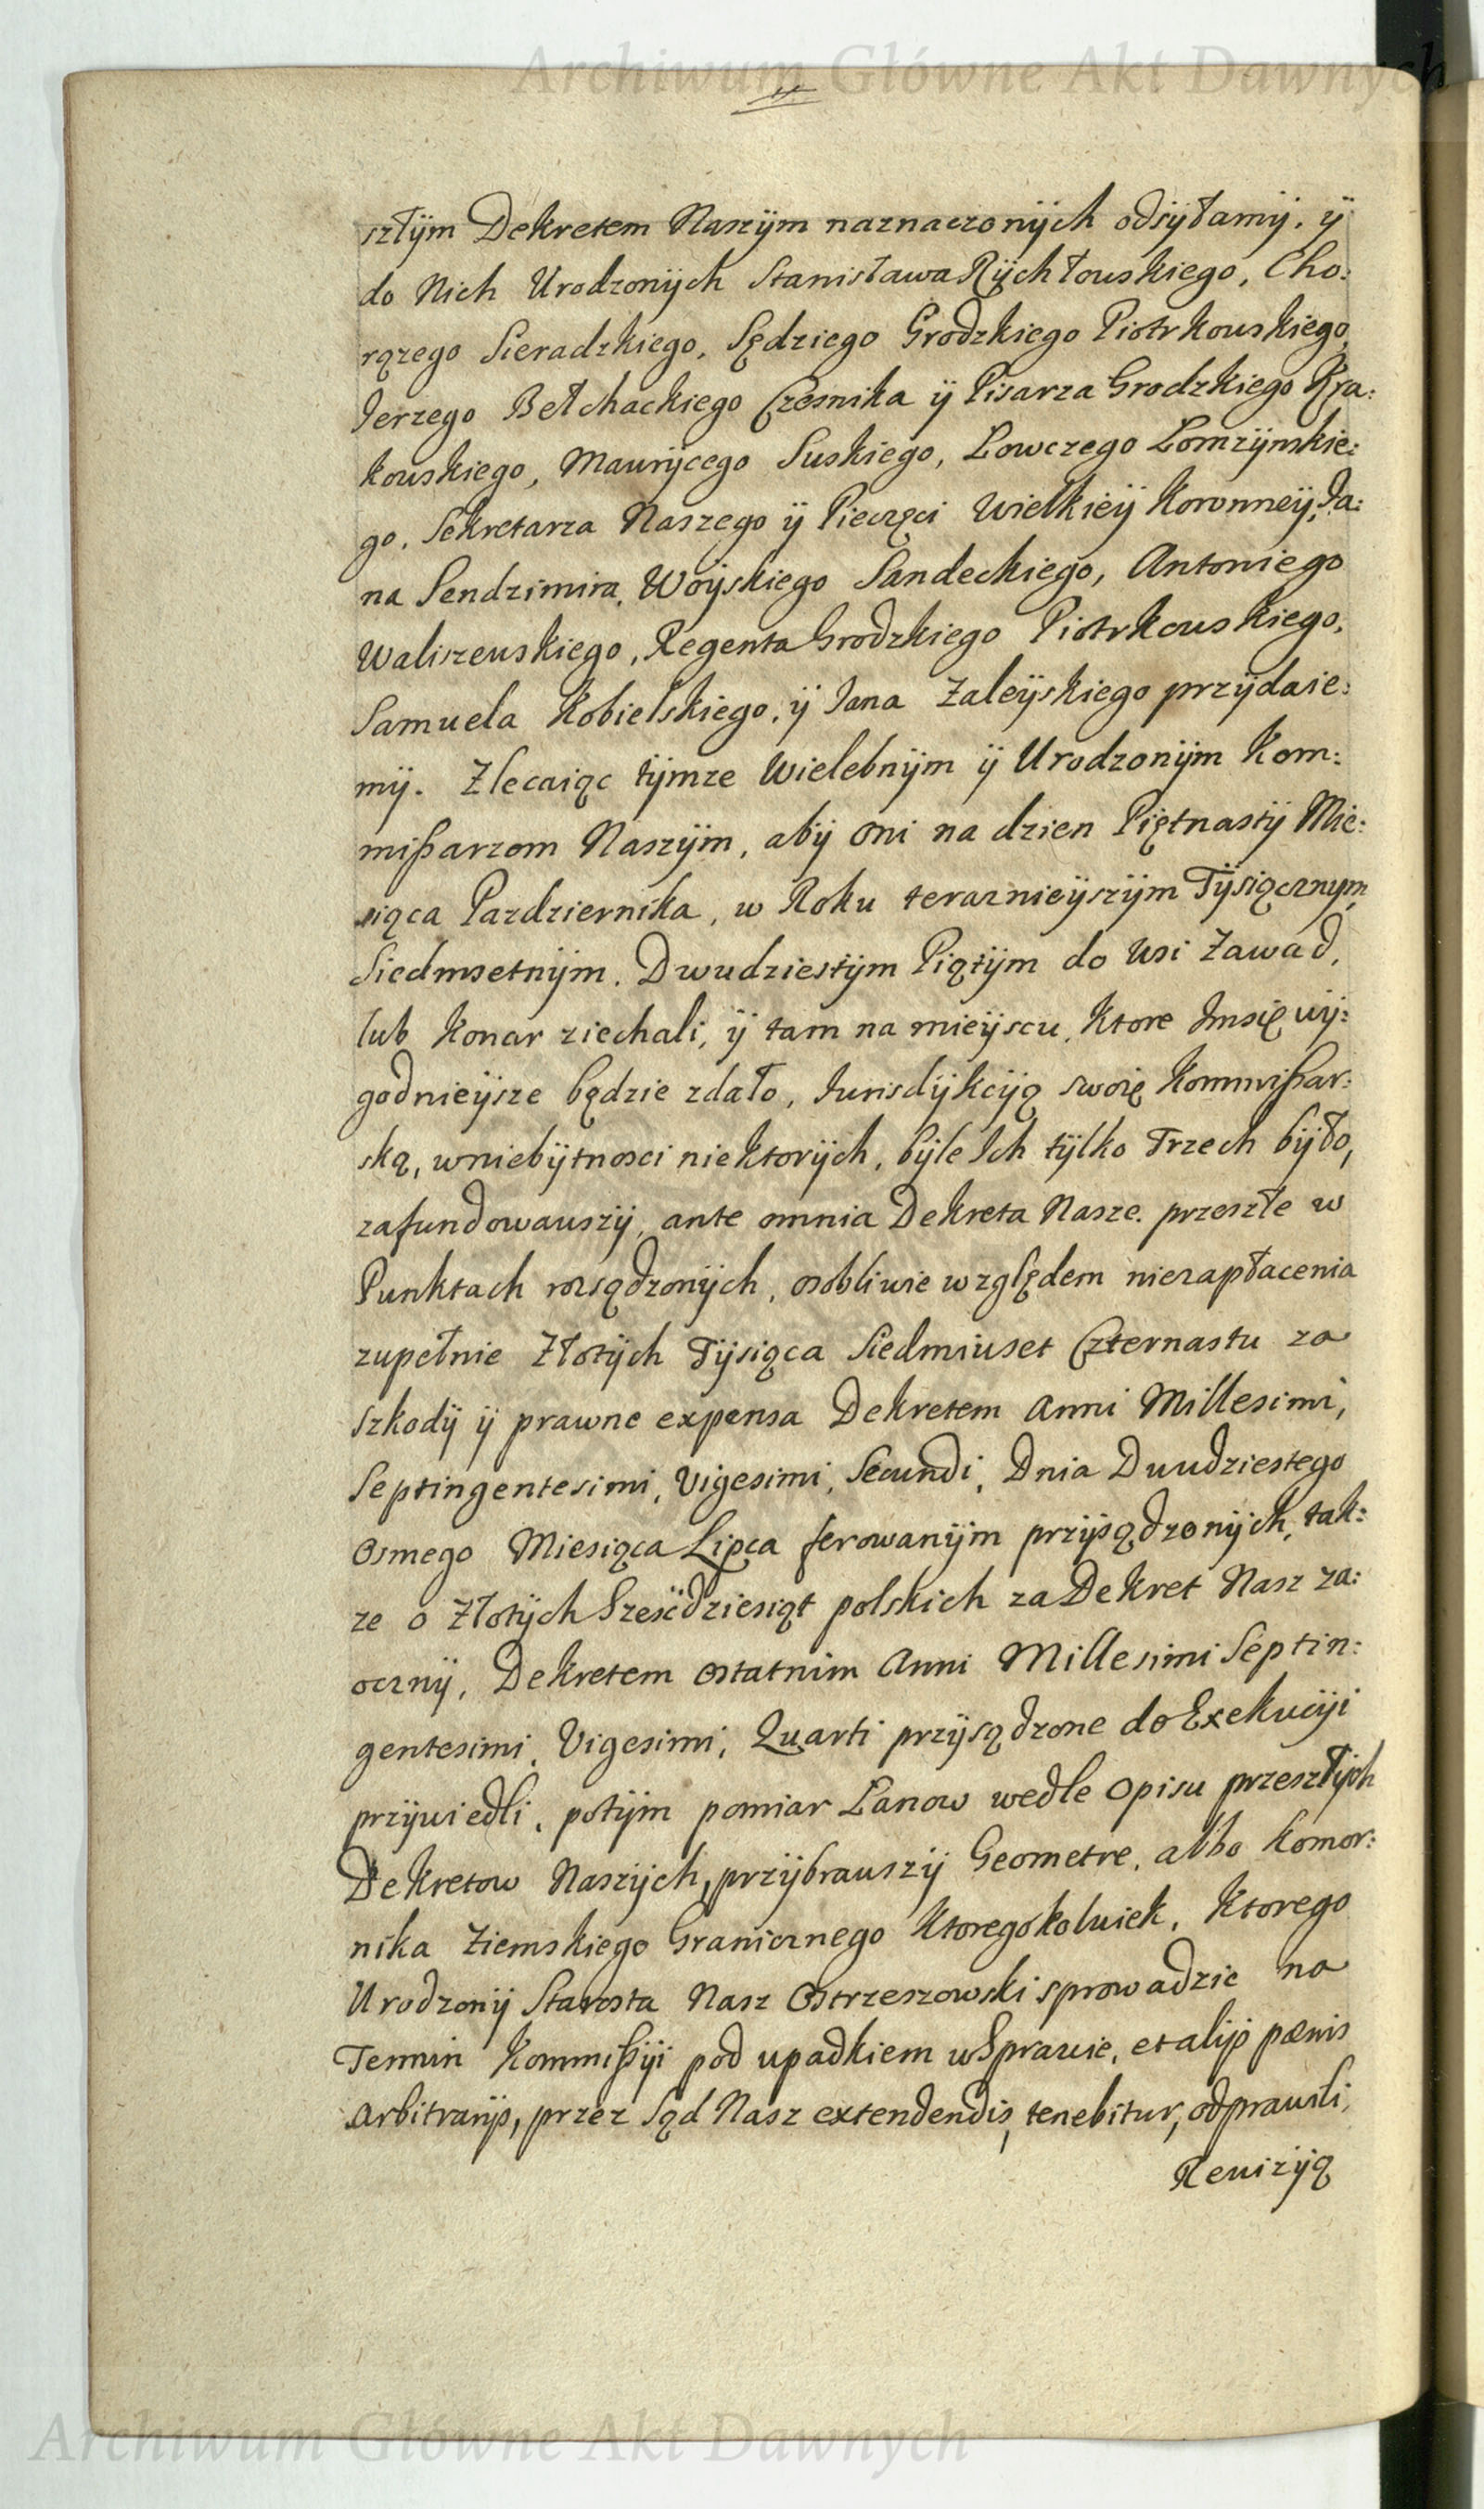 Archiwum Główne Akt Dawnych
szłÿm Dekretem Naszÿm naznaczonÿch odsÿłamÿ. ÿ
do Nich Urodzonÿch Stanisława Rÿchłouskiego, Cho:
rązego Sieradzkiego, Sędziego Grodzkiego Piotrkouskiego,
Jerzego Bełchackiego Czesnika ÿ Pisarza Grodzkiego Kra:
kouskiego, Maurÿcego Suskiego, Lowczego Lomzÿmskie:
go, Sekretarza Naszego ÿ Pieczęci Wielkieÿ Koronneÿ, Ja:
na Sendzimira, Woÿskiego Sandeckiego, Antoniego
Waliszeuskiego, Regenta Grodzkiego Piotrkouskiego,
Samuela Kobielskiego, ÿ Jana Zaleÿskiego przÿdaie:
mÿ. Zlecaiąc tÿmze Wielebnÿm ÿ Urodzonÿm Kom:
mißarzom Naszÿm, abÿ oni na dzien Piętnastÿ Mie:
siąca Pazdziernika, w Roku teraznieÿszÿm Tÿsiącznym,
Siedmsetnÿm, Dwudziestÿm Piątÿm do Wsi Zawad,
lub Konar ziechali, ÿ tam na mieÿscu, Ktore Imsię wÿ:
godnieÿsze będzie zdało, Jurisdÿkcÿą swoię Kommißar:
ską, wniebÿtnosci niektorÿch, bÿle Ich tÿlko Trzech bÿło,
zafundowauszÿ, ante omnia Dekreta Nasze. przeszłe w
Punktach rozsądzonÿch, osobliwie względem niezapłacenia
zupełnie Złotÿch Tÿsiąca Siedmiuset Czternastu za
szkodÿ ÿ prawne expensa Dekretem Anni Millesimi,
Septingentesimi, Vigesimi, Secundi, Dnia Dwudziestego
Osmego Miesiąca Lipca ferowanÿm przÿsądzonÿch, tak:
ze o Złotÿch Szesćdziesiąt polskich za Dekret Nasz za:
ocznÿ, Dekretem ostatnim Anni Millesimi Septin:
gentesimi, Vigesimi, Quarti przÿsądzone do Exekucÿi
przÿwiedli, potÿm pomiar Lanow wedle opisu przeszłÿch
Dekretow Naszÿch, przÿbrauszÿ Geometre, albo Komor:
nika Ziemskiego Granicznego Ktoregokolwiek, Ktorego
Urodzonÿ Starosta Nasz Ostrzeszowski sprowadzic na
Termin Kommißÿi pod upadkiem wSprawie, et alÿs pœnis
arbitrarÿs, przez Sąd Nasz extendendis, tenebitur, odprawili,
Rewizÿą
Archiwum Główne Akt Dawnych